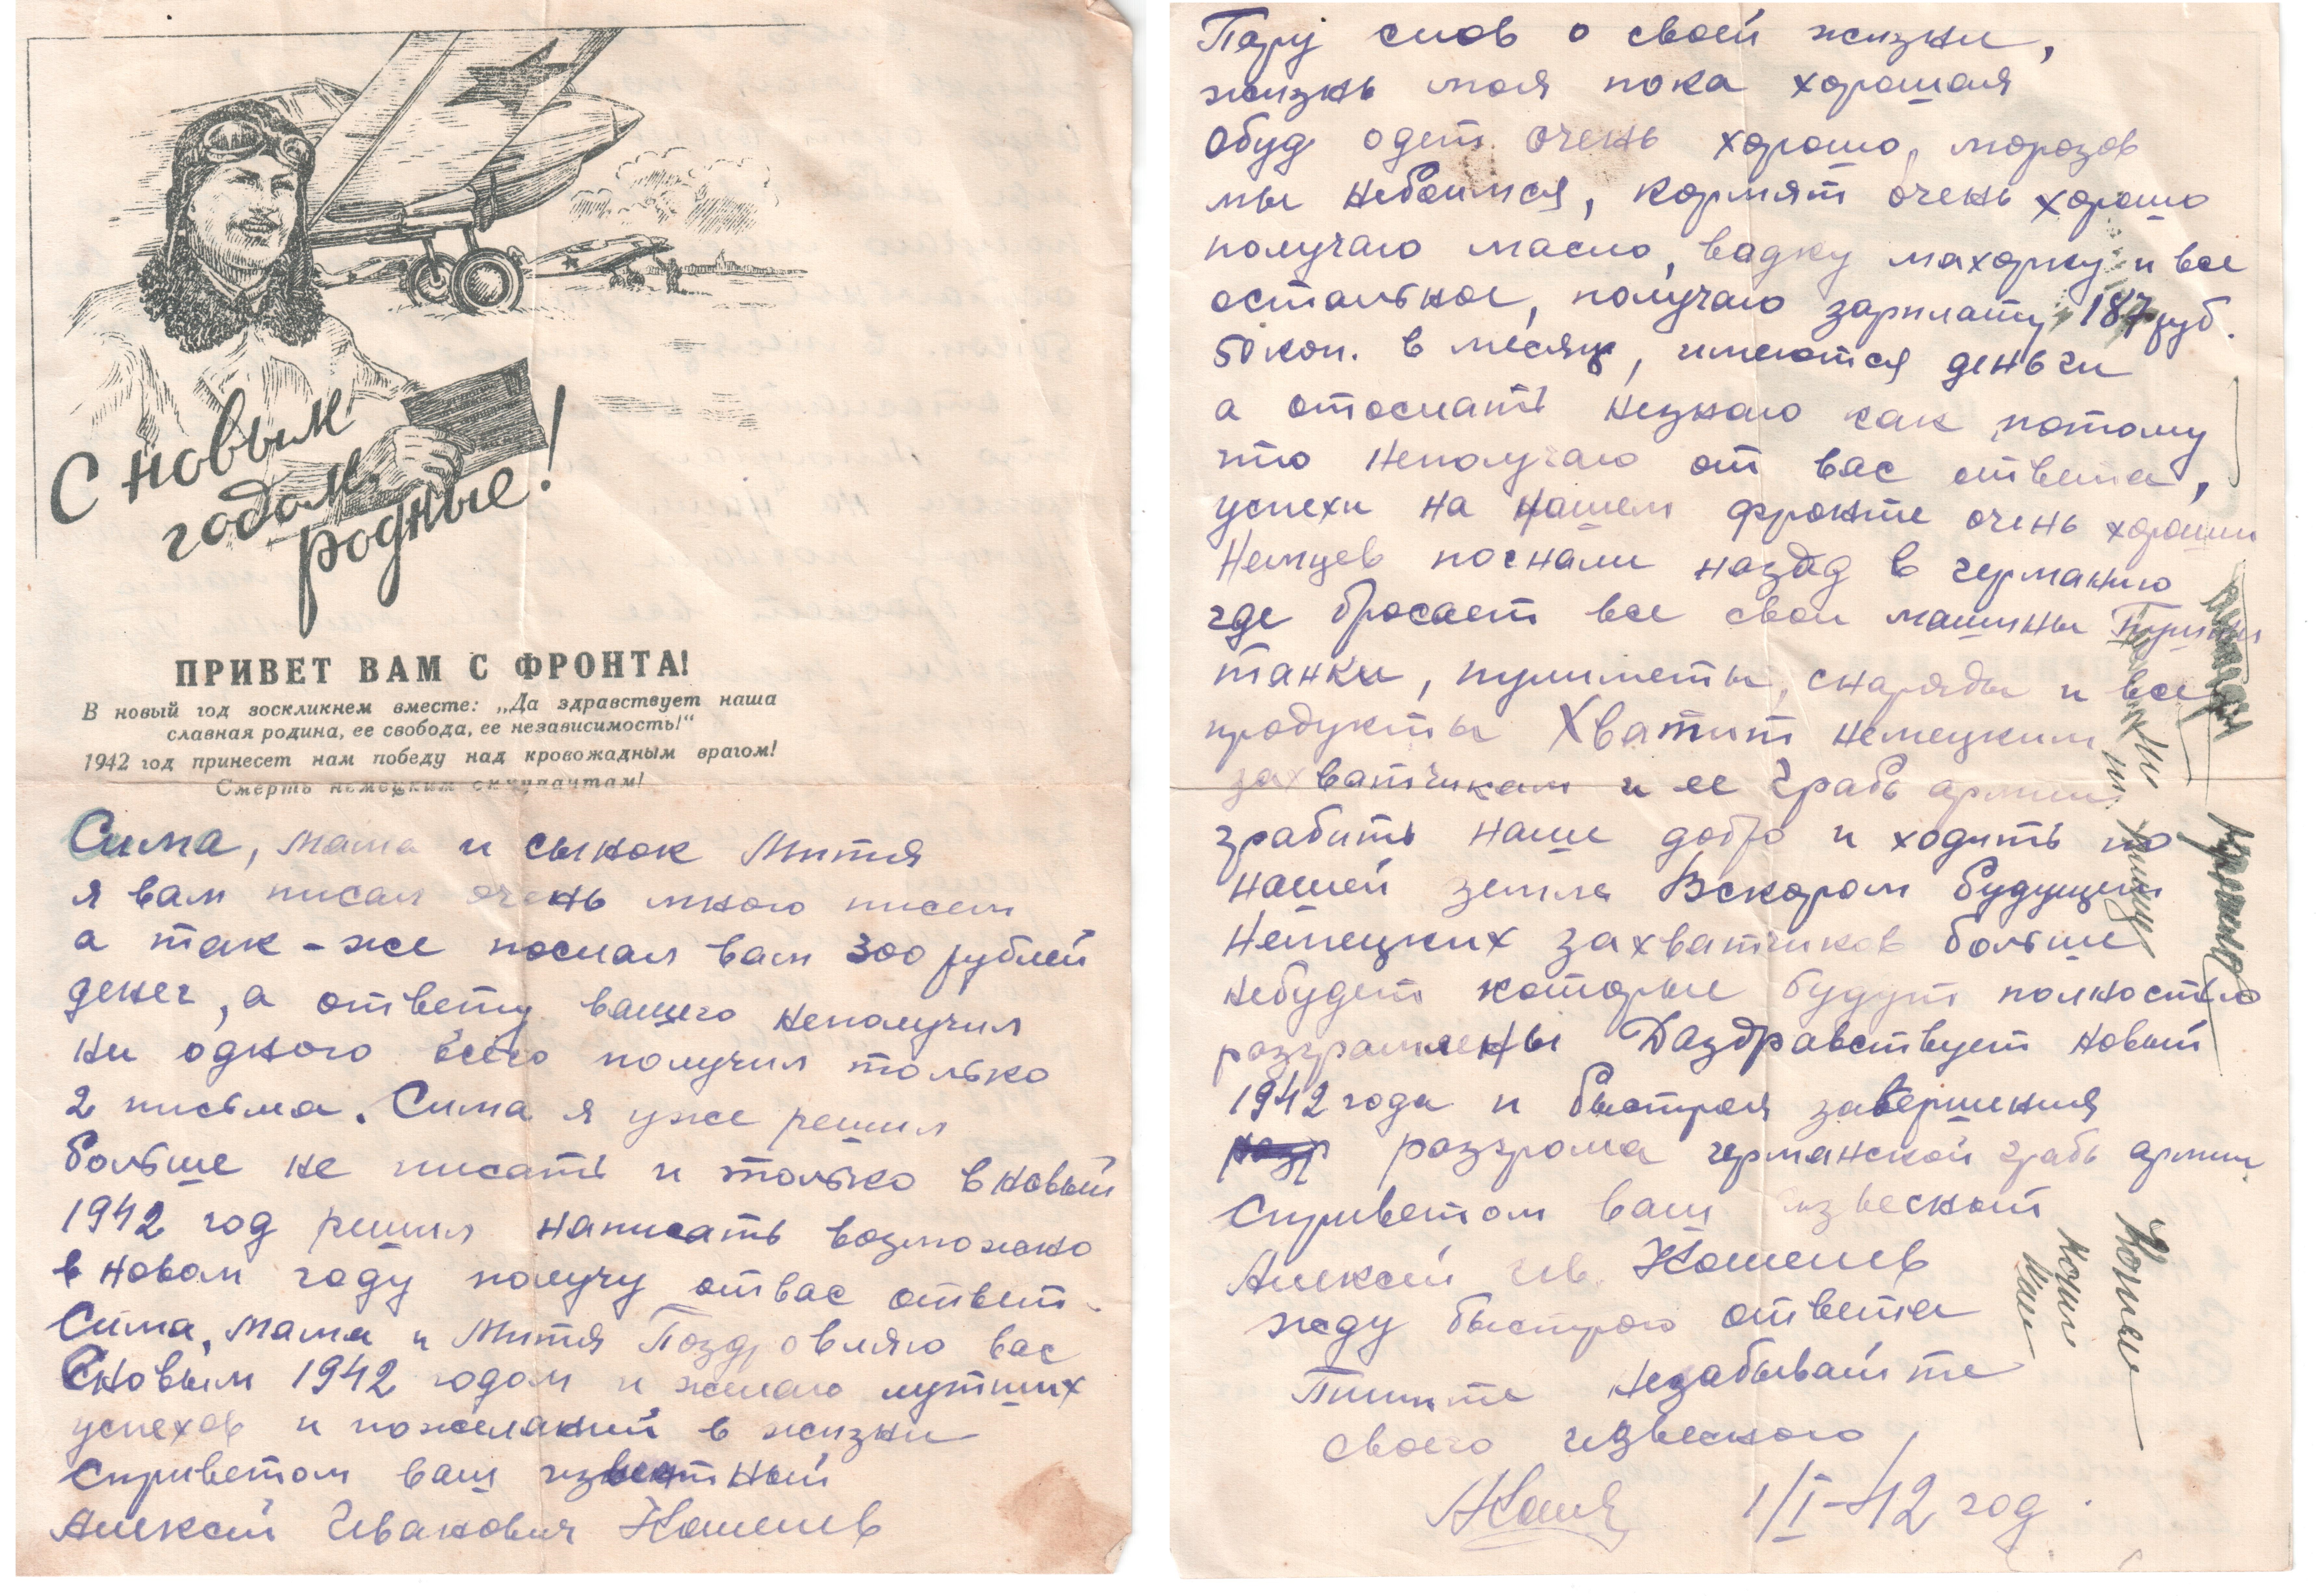 С новым
годом,
родные!
ПРИВЕТ ВАМ С ФРОНТА!
В новый год воскликнем вместе: „Да здравствует наша
славная родина, ее свобода, ее независимость!“
1942 год принесет нам победу над кровожадным врагом!
Смерть немецким оккупантам!
Сима, мама и сынок Митя
я вам писал очень много писем
а так-же послал вам 300 рублей
денег, а ответу вашего неполучил
ни одного всего получил только
2 письма. Сима я уже решил
больше не писать и только в новый
1942 год решил написать возможно
в новом году получу отвас ответ.
Сима, мама и Митя Поздровляю вас
Сновым 1942 годом и желаю лутших
успехов и пожеланий в жизни
Сприветом ваш известный
Алексей Иванович Кошелев
Пару слов о своей жизни,
жизнь моя пока хорошая
Обуд одет очень хорошо, морозов
мы небоимся, кормят очень хорошо
получаю масло, вадку махорку и все
остальное, получаю зарплату 187 руб.
50 коп. в месяц, имеются деньги
а отослать незнаю как потому
что неполучаю от вас ответа,
успехи на нашем фронте очень хороши
Немцев погнали назад в германию
где бросает все свои машины Пушки
танки, пулиметы, снаряды и все
продукты Хватит немецким
захватчикам и ее грабь армии
грабить наше добро и ходить по
нашей земле Вскором будущем
Немецких захватчиков больше
небудет которые будут полностью
разгромлены Даздравствует новый
1942 года и быстрая завершения
разгрома германской грабь армии
Сприветом ваш извеский
Алексей Ив. Кошелев
жду быстрого ответа
Пишите незабывайте
своего извеского
АКоше 1/I-42 год.